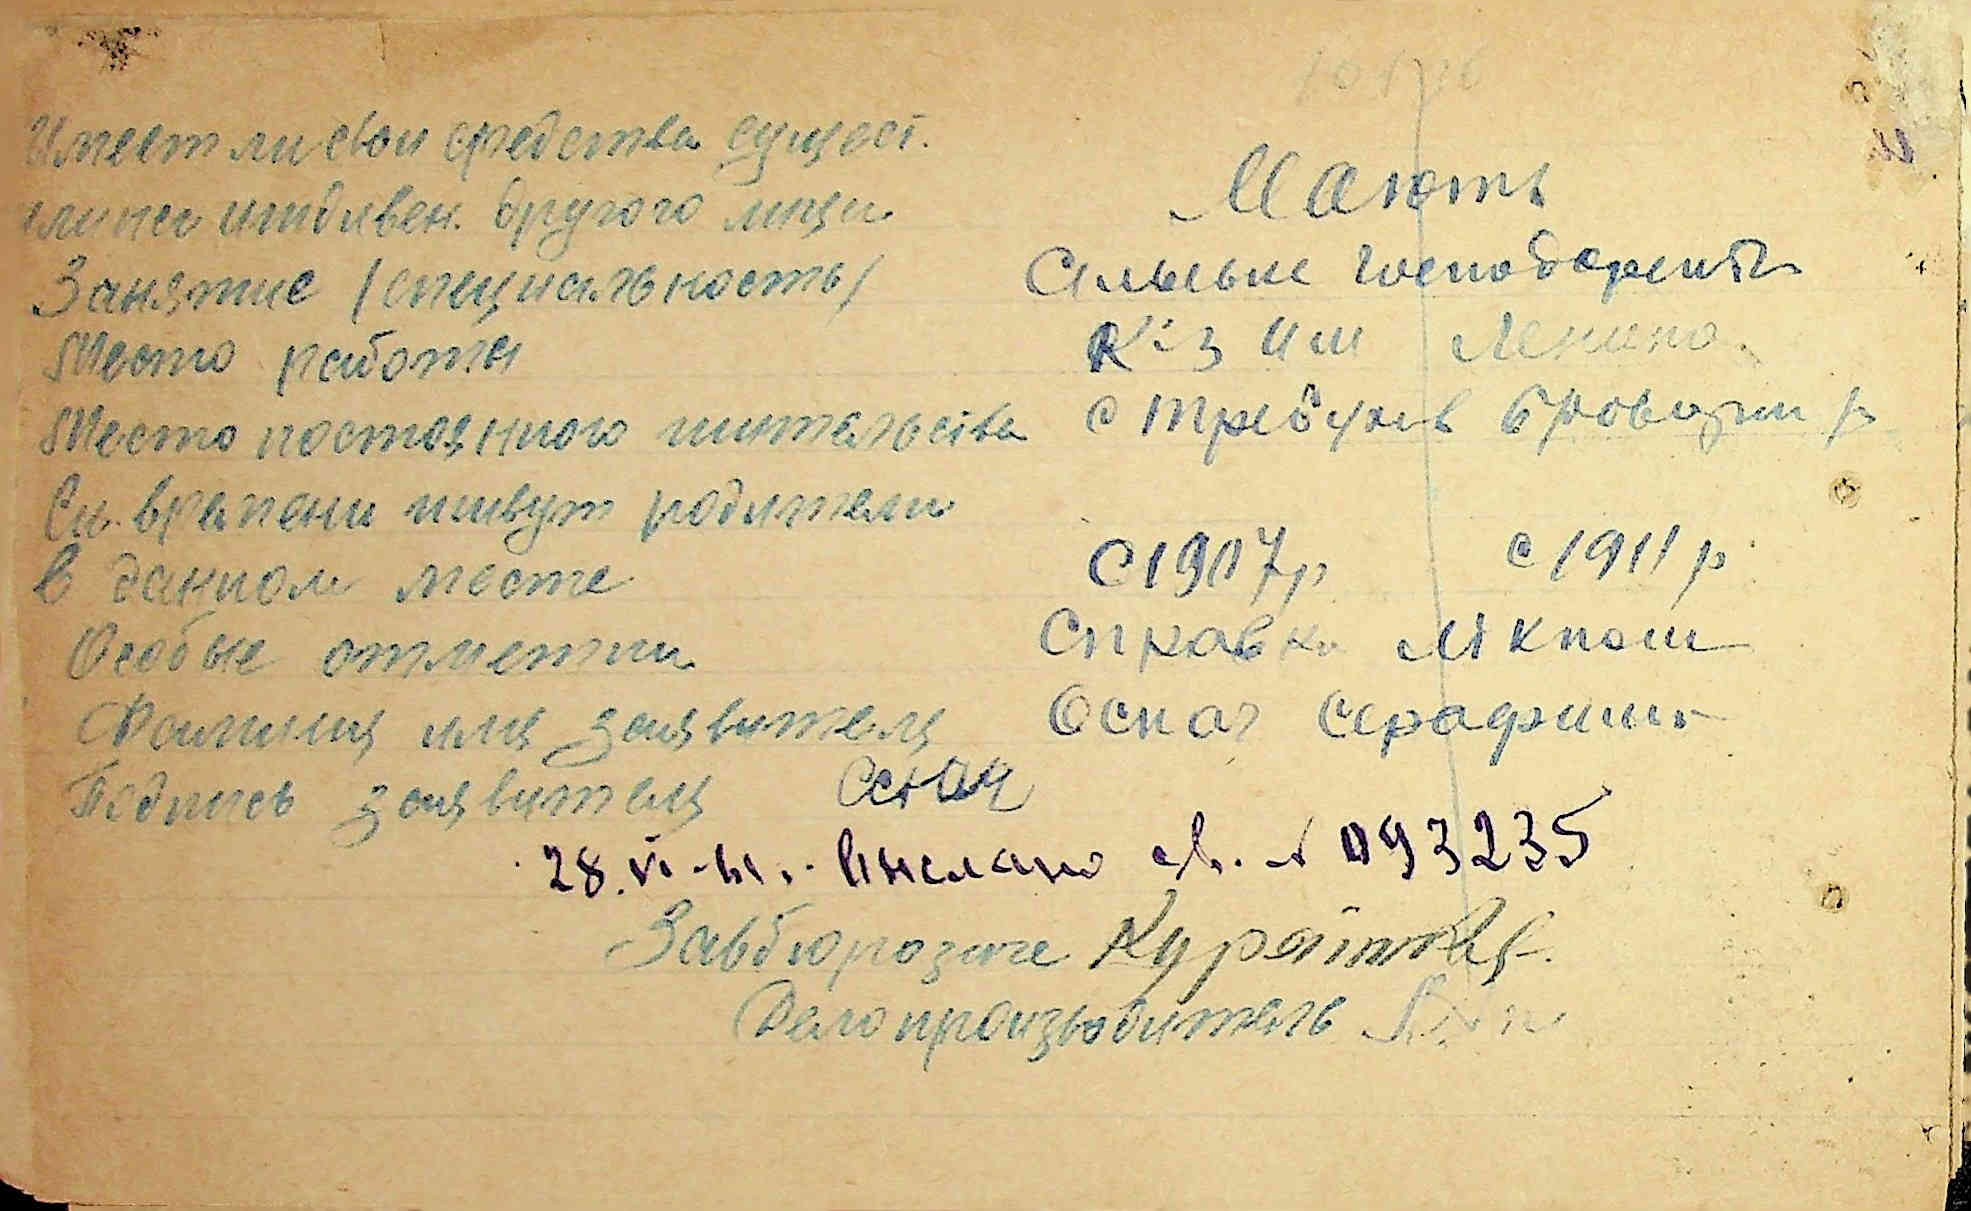 Имеет ли свои средства сущест.
или на иждивен. другого лица Мають
Занятие (специальность) Сильске господарств
Место работы К-з им Ленина
Место постоянного жительства с Требухів Броварськ р
Ск. времени живут родители
в данном месте С 1907 р с 1911 р
Особые отметки Справка лікпом
Фамилия имя заявителя Оснач Серафим
Подпись заявителя Оснач
28. VI - 41. Вислано св. № 093235
Завбюрозагс
Делопроизводитель